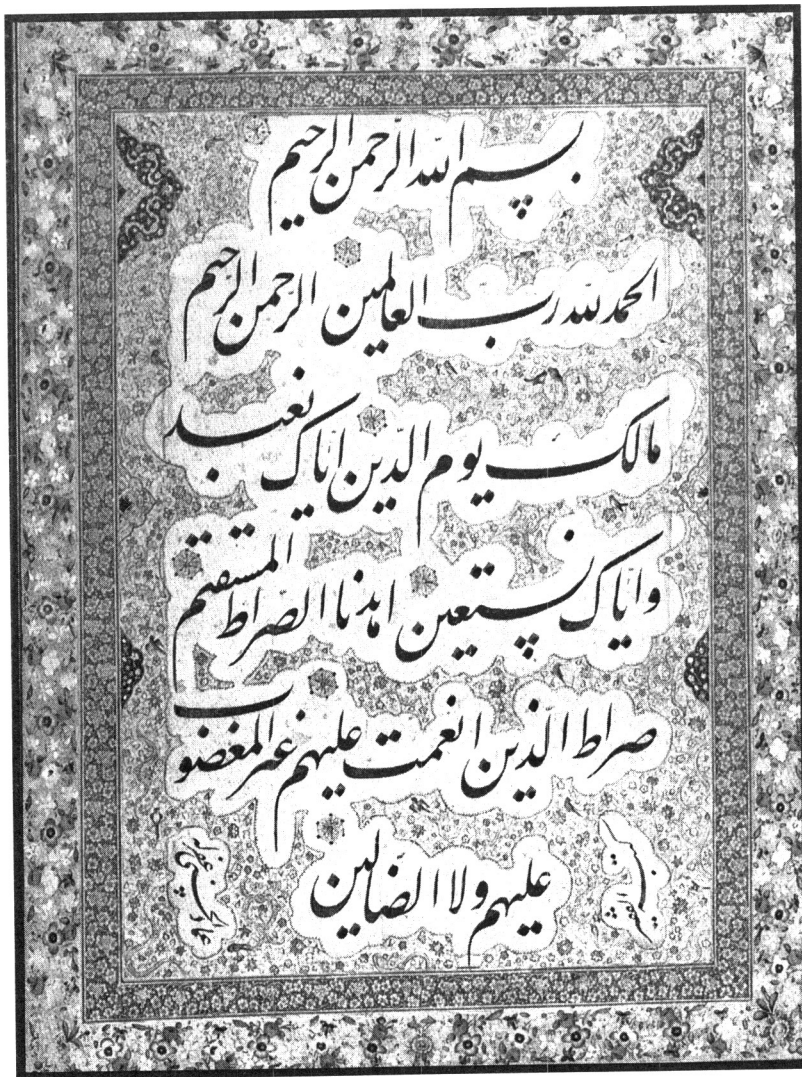 بسم الله الرّحمن الرحيم
الحمد لله رب العالمين الرحمن الرّحيم
مالك يوم الدّين ايّاك نعبد
و ايّاك نستعين اهدنا الصّراط المستقيم
صراط الّذين انعمت عليهم غير المغضوب
عليهم ولا الضّالين